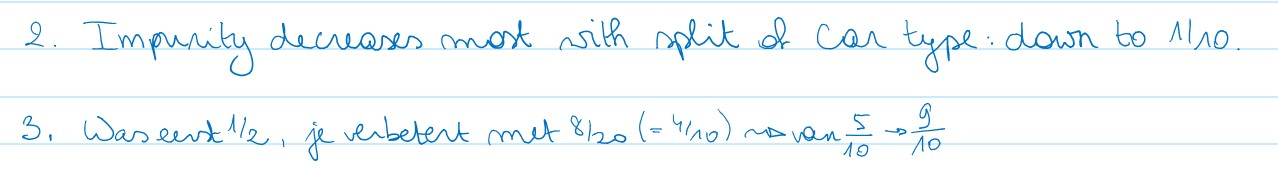 2. Impurity decreases most with split of car type: down to 1/10.
3. Was eerst 1/2, je verbetert met 8/20 (= 4/10) ⇝ van 5/10 → 9/10